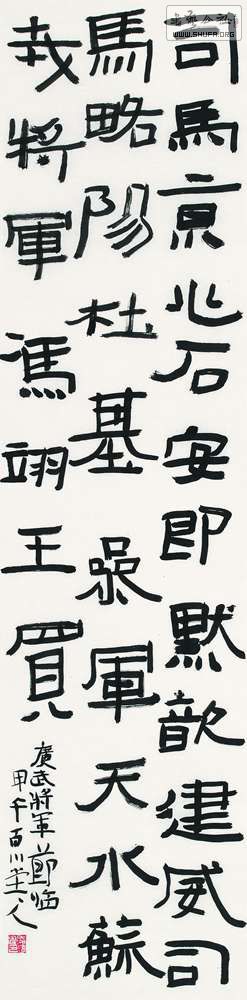 司馬京兆石安即默歆建威司
馬略陽杜基參軍天水蘇
哉將軍馮翊王買
廣武將軍節臨
甲午百川
人
WWW.SHUFA.ORG